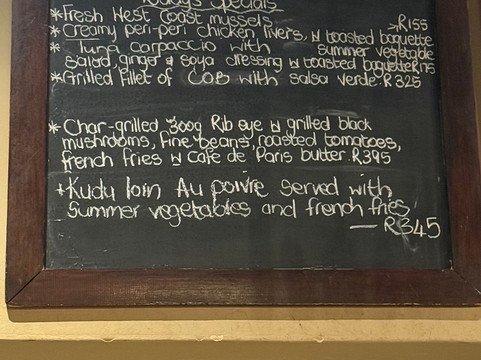 Today's Specials
*Fresh West Coast mussels
*Creamy peri-peri chicken livers, w toasted baguette R155
* Tuna carpaccio with summer vegetable
salad, ginger & soya dressing w toasted baguette R175
*Grilled Fillet of COB with salsa verde R325
* Char-grilled 300g Rib eye w grilled black
mushrooms, fine beans, roasted tomatoes,
french fries w Cafe de Paris butter. R395
*Kudu loin Au poivre served with
Summer vegetables and french fries
— R345